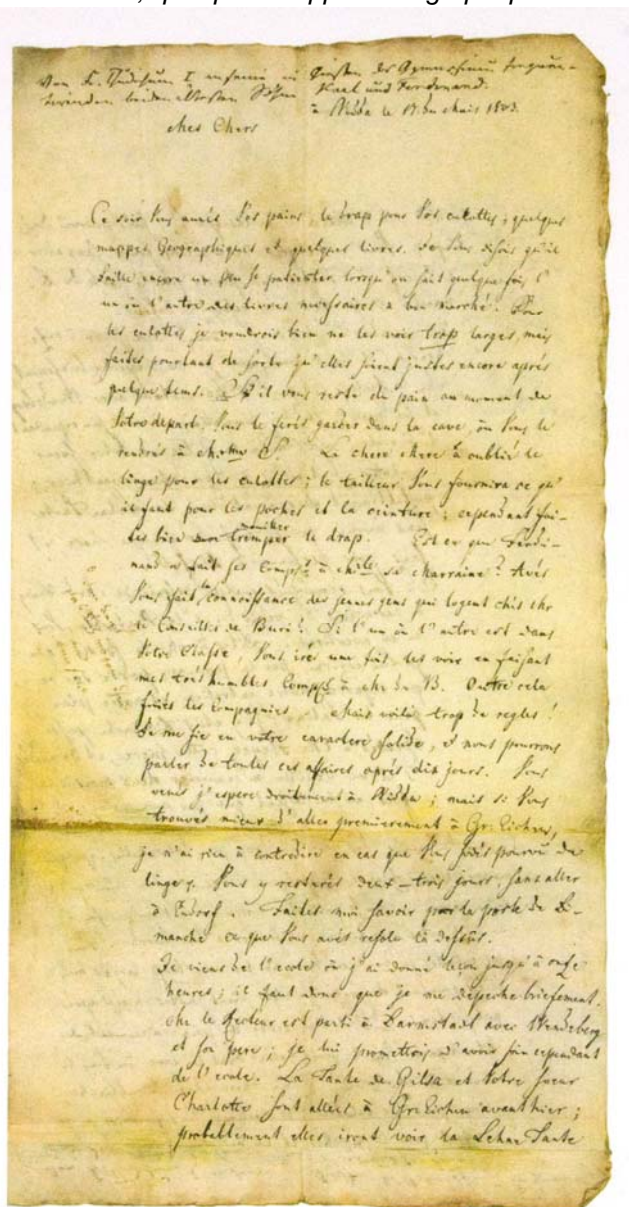 Von L. Thudichum I an seine in Giessen das Gymnasium frequen-
tirenden beiden ältesten Söhne Karl und Ferdinand.
à Nidda le 13. du Mais 1803.
Mes Chers
Ce soir Vous aurés Vos pains, le drap pour Vos culottes, quelques
mappes Geographiques et quelques livres. Je Vous disois qu'il
faille encore un peu se patienter lorsqu'on fait quelque fois l'
un ou l'autre des livres necessaires à bon marché. Pour
les culottes je voudrois bien ne les voir trop larges, mais
faites pourtant de sorte qu'elles soient justes encore aprés
quelque tems. S'il vous reste du pain au moment de
Votre depart, Vous le ferés garder dans la cave, ou Vous le
rendrés à S. La chere mere a oublié le
linge pour les culottes; le tailleur Vous fournira ce qu'
il faut pour les poches et la ceinture; cependant fai-
tes bien tremper le drap. Est ce que Ferdi-
nand a fait ses Compl. à sa marraine? Avés
Vous fait la connoissance des jeunes gens qui logent chés Mr
le Conseiller de Buri? Si l'un ou l'autre est dans
Votre Classe, Vous irés une fois les voir en faisant
mes tres humbles Compl. à Mr de B. Outre cela
fuiés les Compagnies. Mais voilà trop de regles!
Je me fie en votre caractere solide, et nous pourrons
parler de toutes ces affaires aprés dix jours. Vous
venés j'espere droitement à Nidda; mais si Vous
trouvés mieux d'aller premierement à Gr. Eichen,
je n'ai rien à contredire en cas que Vous soiés pourvû du
linge. Vous y resterés deux-trois jours, sans aller
à Endorf. Faites moi savoir par la poste de Di-
manche ce que Vous avés resolu là dessus.
Je viens de l'ecole où j'ai donné leçon jusqu'à onze
heures; il faut donc que je me depeche briefement.
Mr le Recteur est parti à Darmstadt avec
et son pere; je lui promettois d'avoir soin cependant
de l'ecole. La Tante de Gilsa et Votre soeur
Charlotte sont allées à Gr. Eichen avanthier;
probablement elles iront voir la Tante